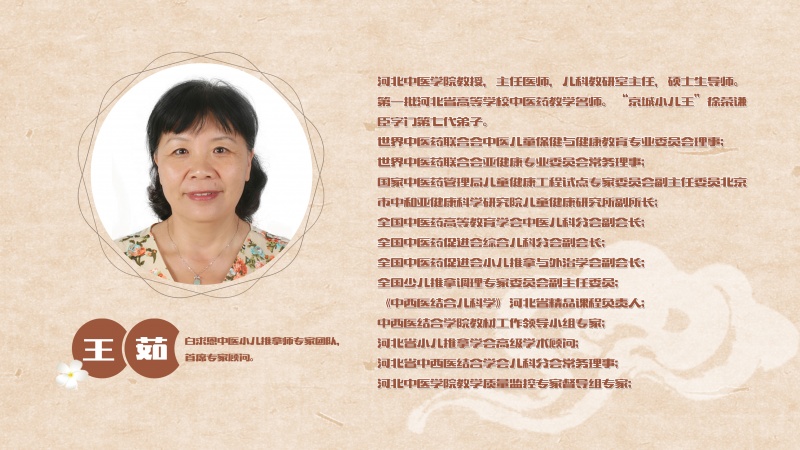 河北中医学院教授、主任医师、儿科教研室主任、硕士生导师。
第一批河北省高等学校中医药教学名师。“京城小儿王”徐荣谦
臣字门第七代弟子。
世界中医药联合会中医儿童保健与健康教育专业委员会理事;
世界中医药联合会亚健康专业委员会常务理事;
国家中医药管理局儿童健康工程试点专家委员会副主任委员北京
市中和亚健康科学研究院儿童健康研究所副所长;
全国中医药高等教育学会中医儿科分会副会长;
全国中医药促进会综合儿科分会副会长;
全国中医药促进会小儿推拿与外治学会副会长;
全国少儿推拿调理专家委员会副主任委员;
《中西医结合儿科学》河北省精品课程负责人;
中西医结合学院教材工作领导小组专家;
河北省小儿推拿学会高级学术顾问;
河北省中西医结合学会儿科分会常务理事;
河北中医学院教学质量监控专家督导组专家;
王 茹
白求恩中医小儿推拿师专家团队,
首席专家顾问。